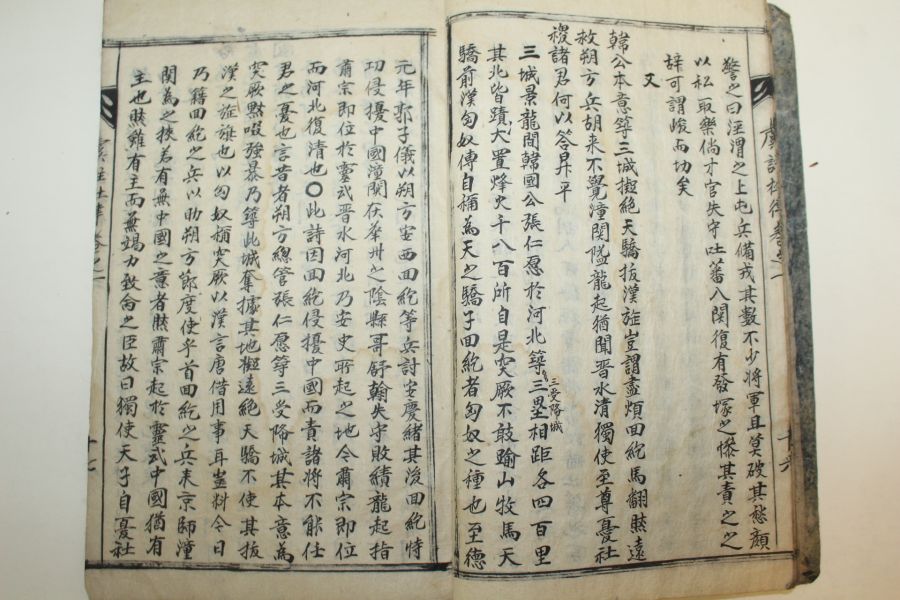 警之曰涇渭之上屯兵備戎其數不少將軍且莫破其愁顔
以私取樂倘才官失守吐蕃入関復有發塚之慘其責之之
辞可謂峻而切矣
又
韓公本意築三城擬絶天驕抜漢旌豈謂盡煩回紇馬翻然遠
救朔方兵胡来不覺潼関隘龍起猶聞晋水清獨使至尊憂社
稷諸君何以答昇平
三城景龍間韓國公張仁愿於河北築三壘相距各四百里
三受降城
其北皆蹟大置烽火千八百所自是突厥不敢踰山牧馬天
驕前漢匈奴傳自称為天之驕子回紇者匈奴之種也至德
元年郭子儀以朔方安西回紇等兵討安慶緒其後回紇恃
功侵擾中國潼関在華州之陰縣哥舒翰失守敗績龍起指
肅宗即位於靈武晋水河北乃安史所起之地今肅宗即位
而河北復清也〇此詩因回紇侵擾中國而責諸将不能任
君之憂也言昔者朔方總管張仁愿築三受降城其本意為
突厥黙啜強暴乃築此城奪據其地擬遠絶天驕不使其抜
漢之旌旗也以匈奴稱突厥以漢言唐借用事耳豈料今日
乃籍回紇之兵以助朔方節度使乎首回紇之兵来京師潼
関為之挾若有無中國之意者然肅宗起於靈武中國猶有
主也然雖有主而無竭力致命之臣故曰獨使天子自憂社
十六
十七